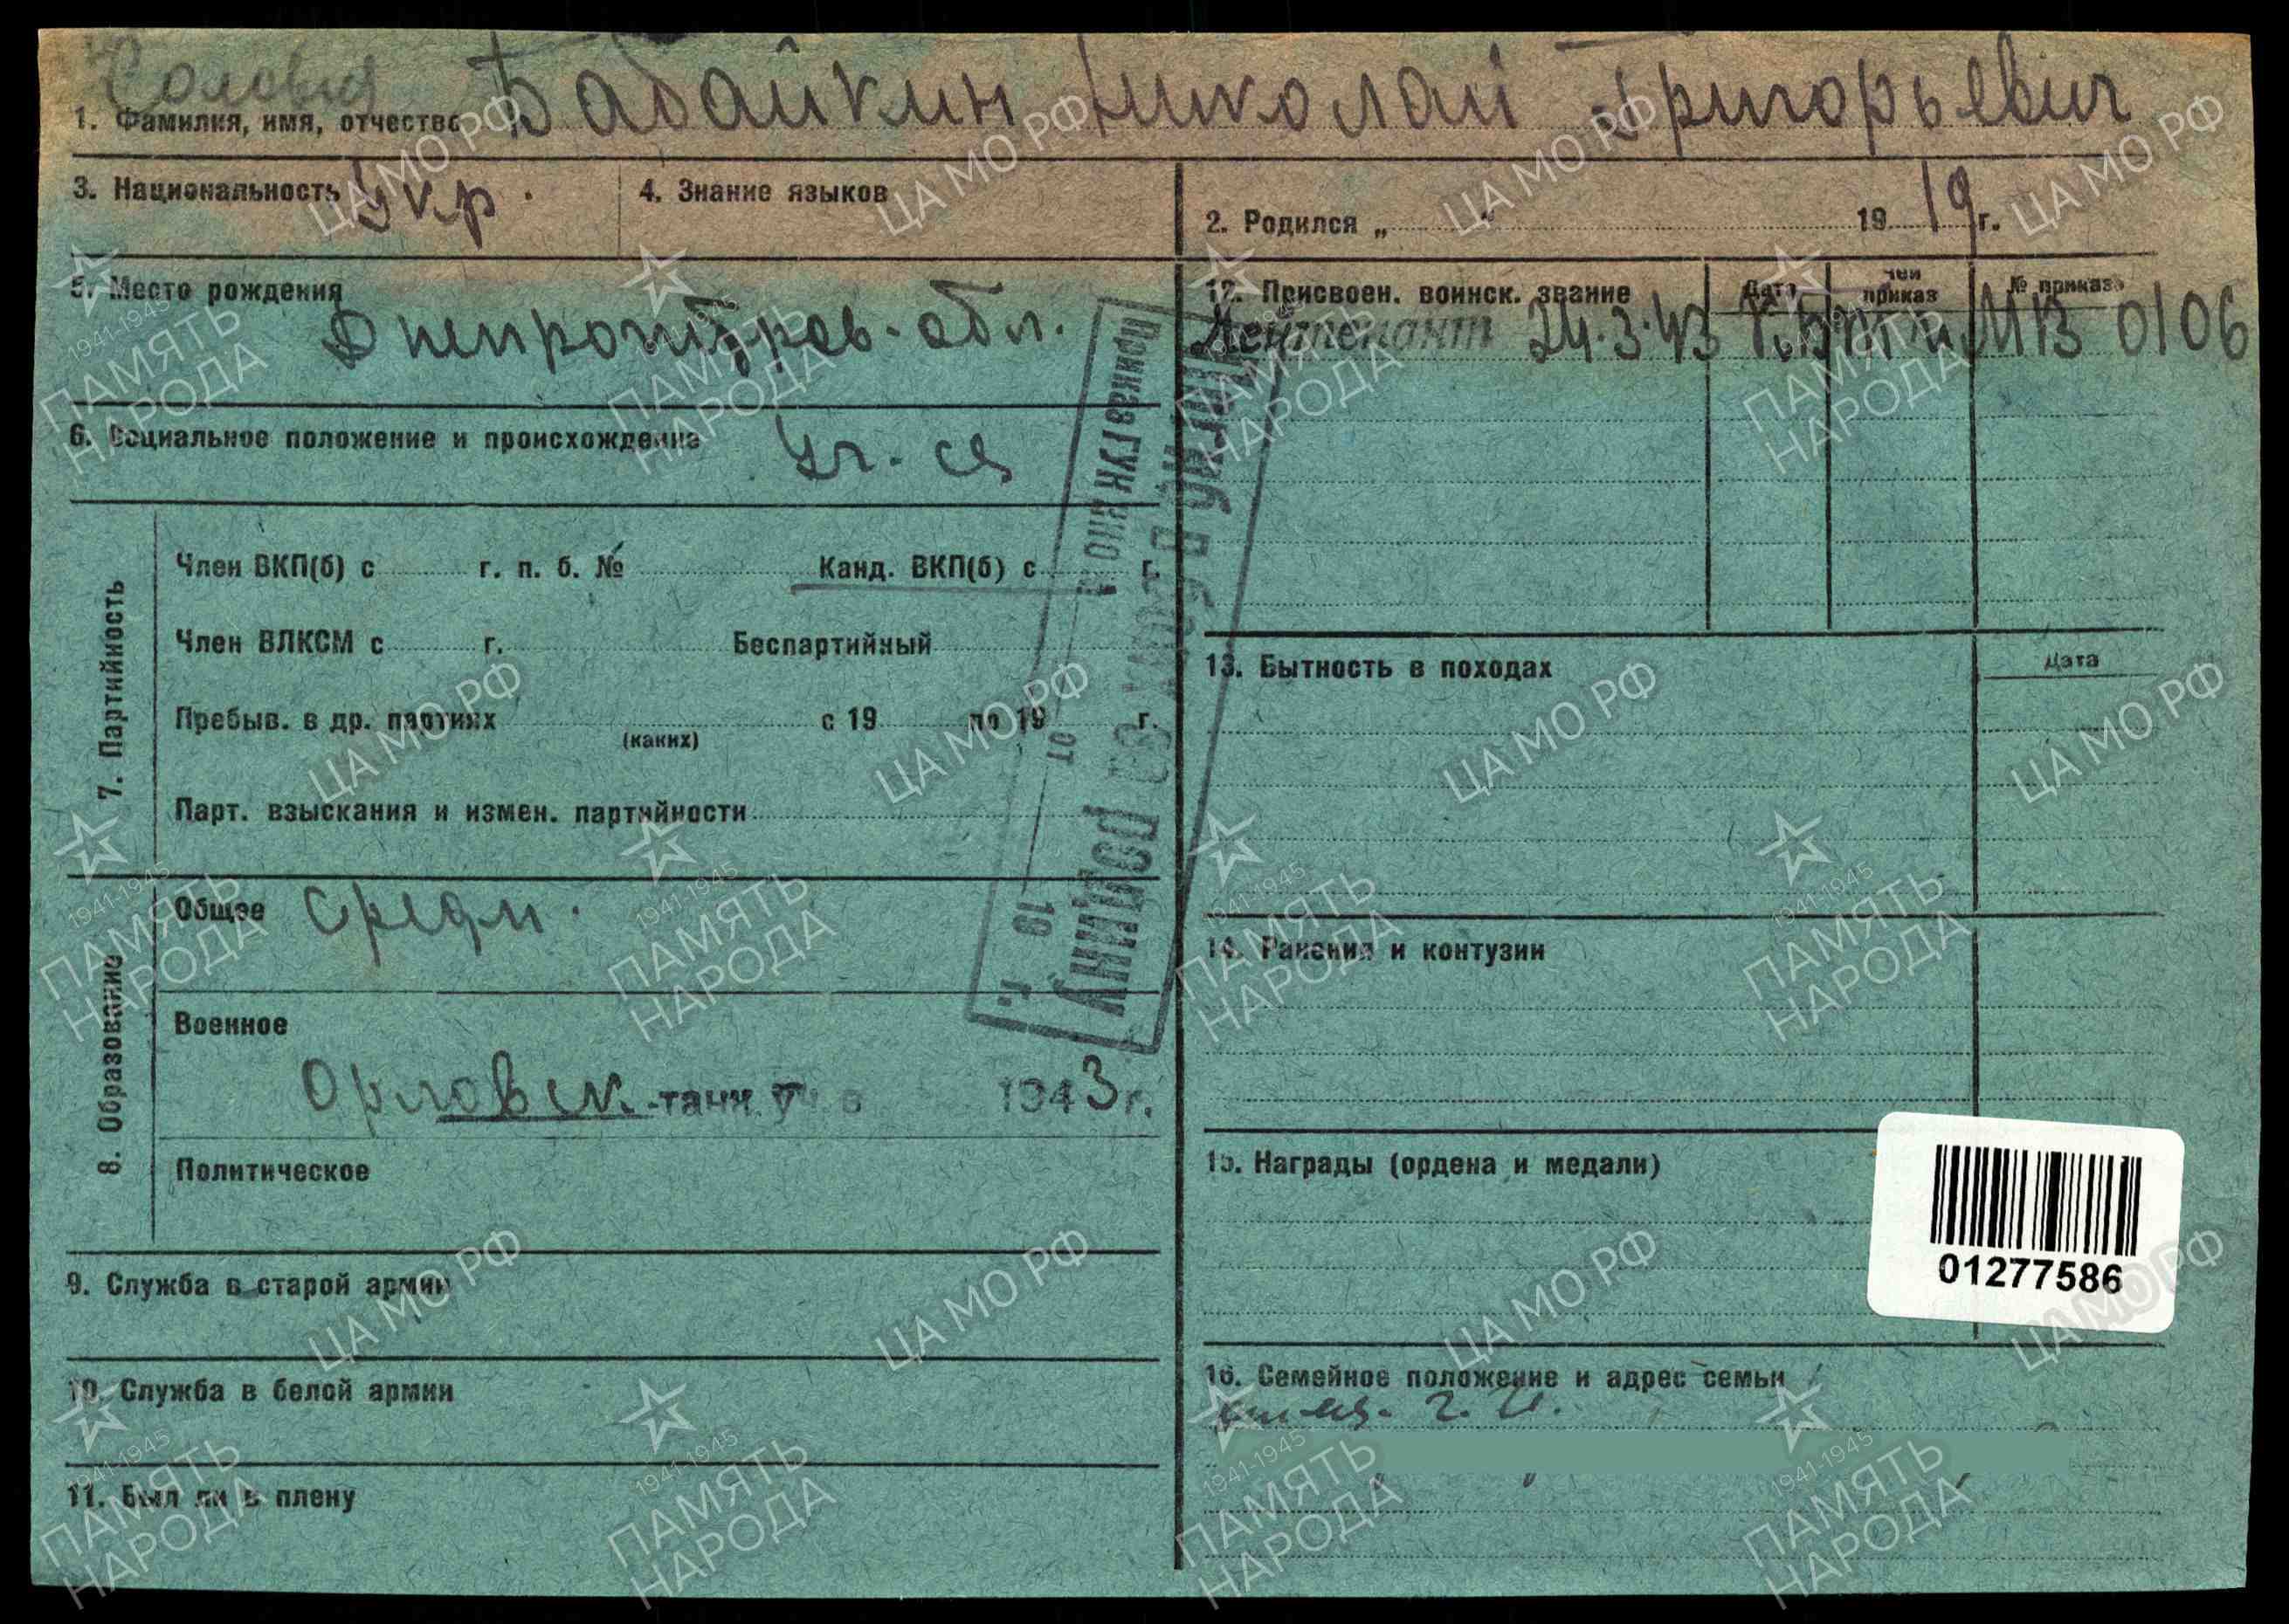 Соловья
1. Фамилия, имя, отчество Бабайкин Николай Григорьевич
3. Национальность Укр.
4. Знание языков
2. Родился „ “ 1919 г.
5. Место рождения
Днепропетров. обл.
6. Социальное положение и происхождение Уч-ся
7. Партийность
Член ВКП(б) с г. п. б. № Канд. ВКП(б) с г.
Член ВЛКСМ с г. Беспартийный
Пребыв. в др. партиях с 19 по 19 г.
(каких)
Парт. взыскания и измен. партийности
8. Образование
Общее средн.
Военное
Орловск. -танк. уч. в 1943 г.
Политическое
9. Служба в старой армии
10. Служба в белой армии
11. Был ли в плену
Погиб в боях за родину
Приказ ГУК НКО № от 19 г.
12. Присвоен. воинск. звание Дата Чей приказ № приказа
Лейтенант 24.3.43 К. БТ и МВ 0106
13. Бытность в походах Дата
14. Ранения и контузии
15. Награды (ордена и медали)
01277586
16. Семейное положение и адрес семьи
ЦА МО РФ
1941-1945
ПАМЯТЬ
НАРОДА